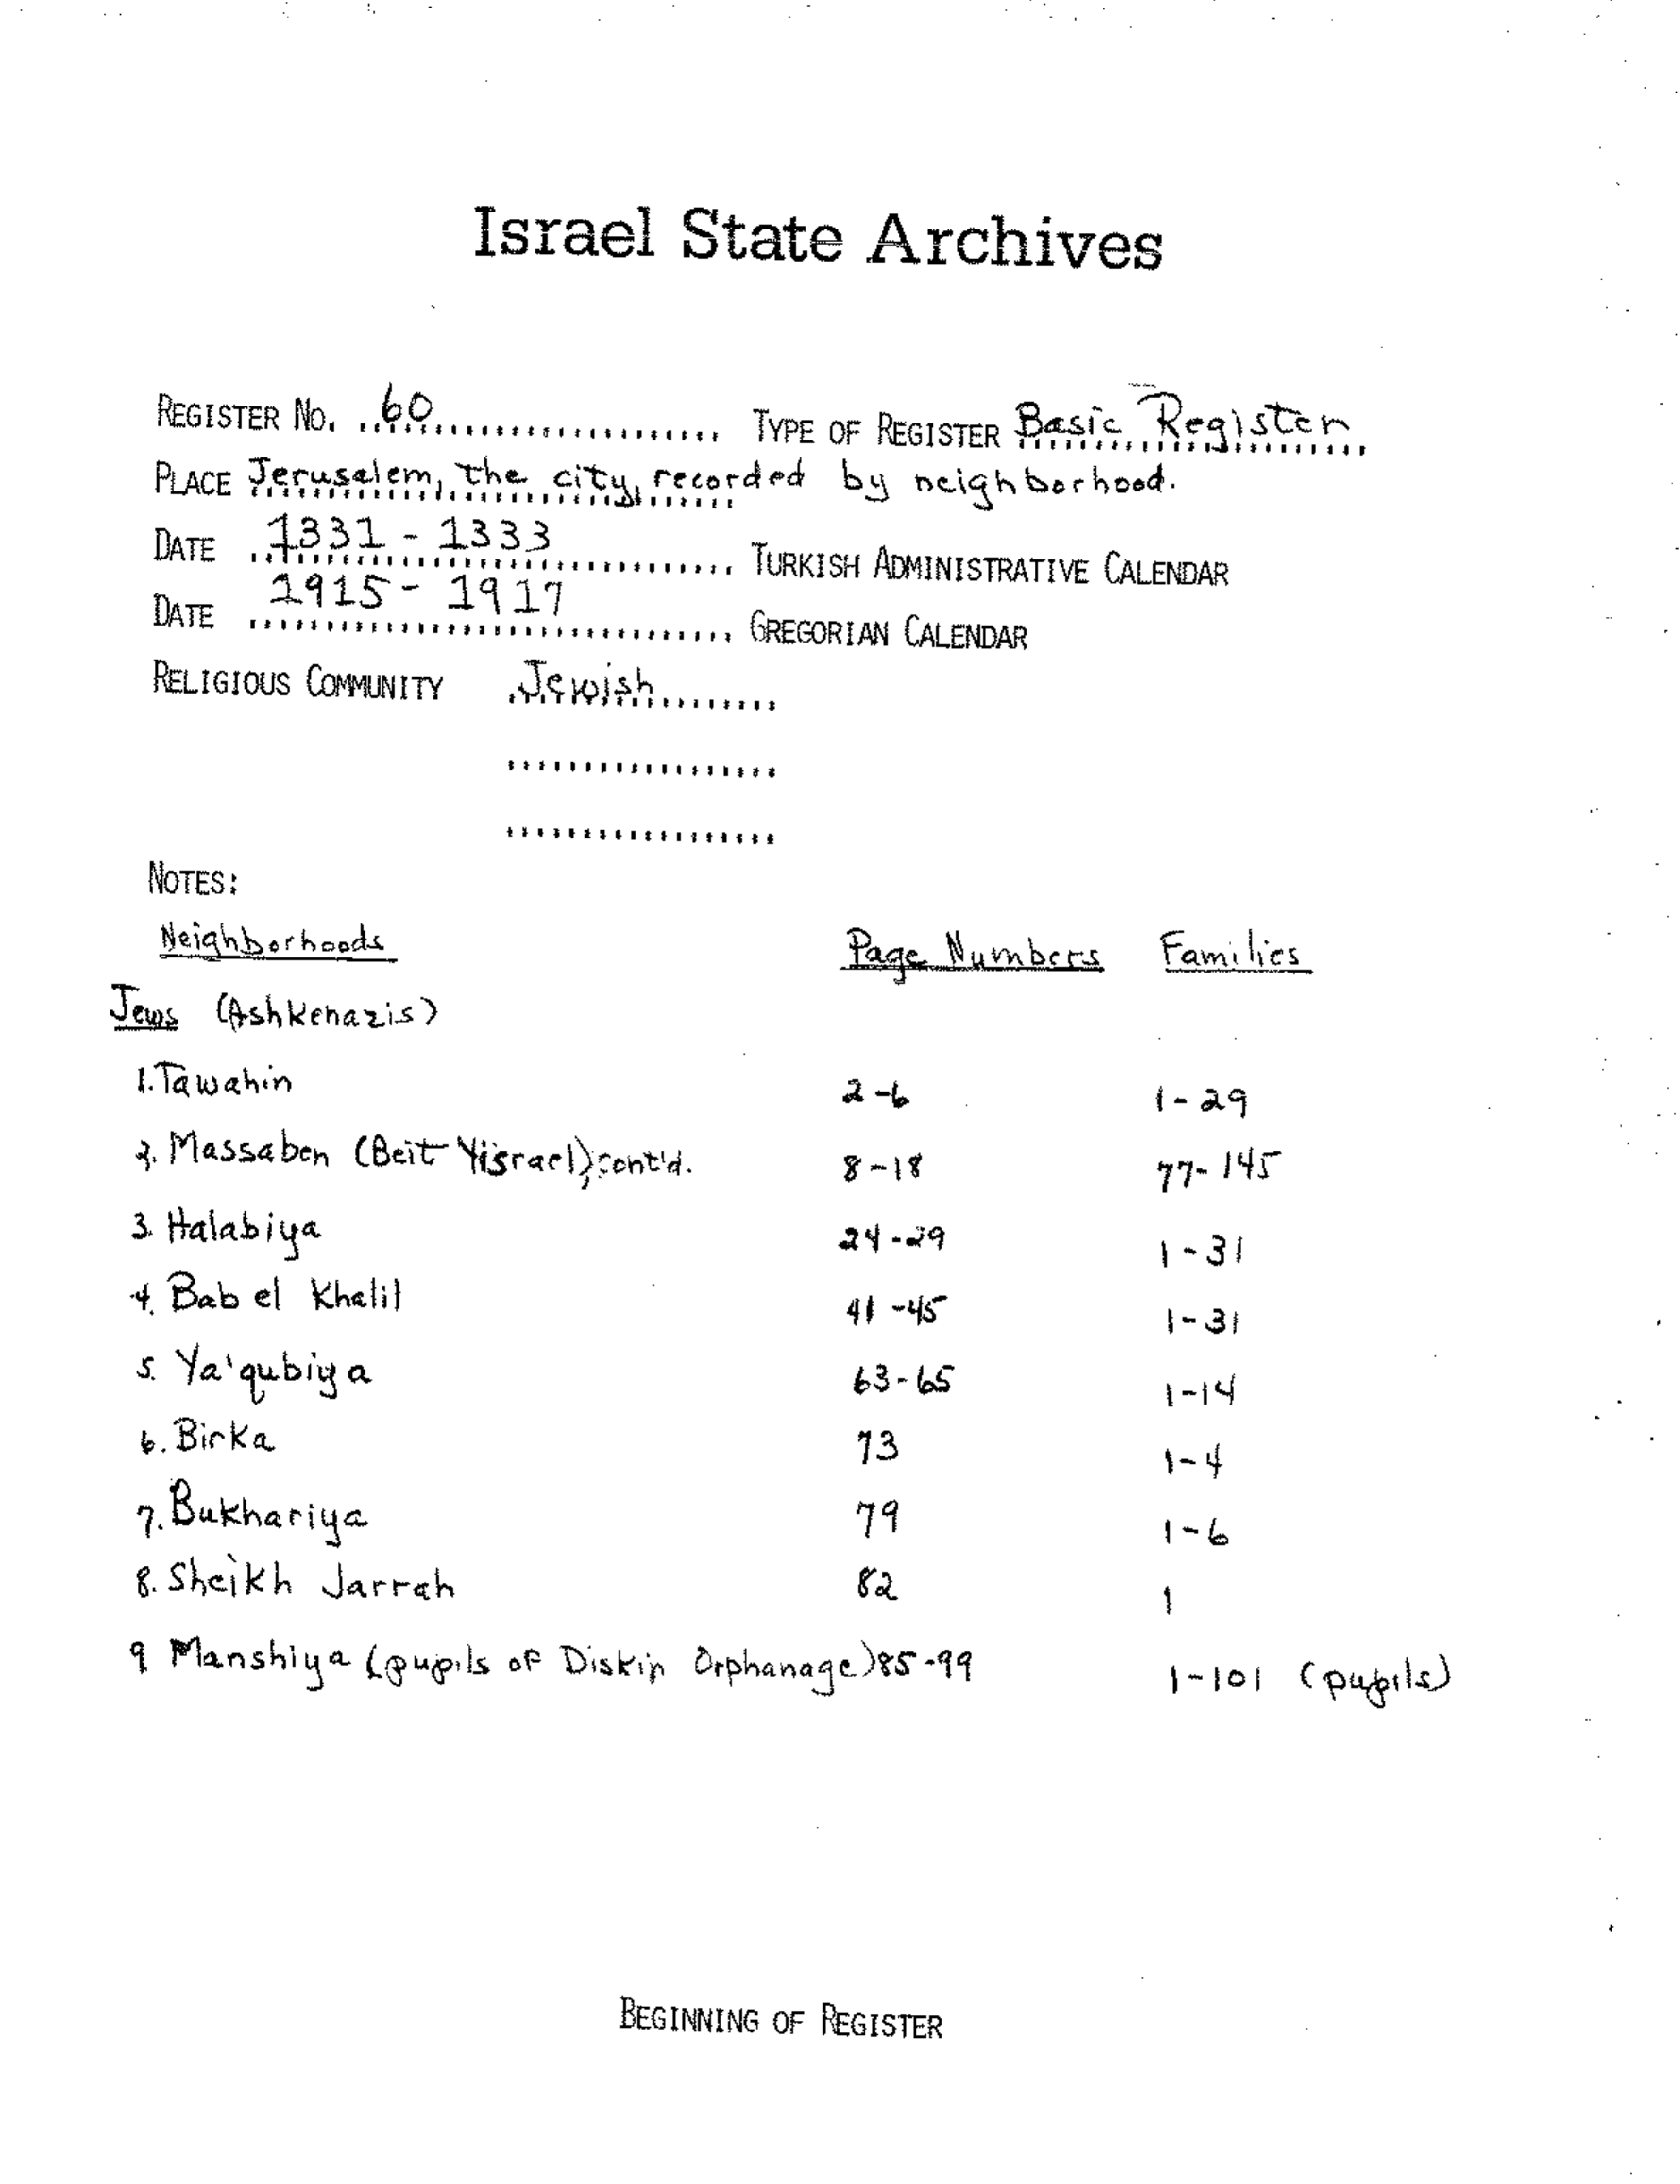 Israel State Archives
REGISTER NO. 60 TYPE OF REGISTER Basic Register
PLACE Jerusalem, the city, recorded by neighborhood.
DATE 1331 - 1333 TURKISH ADMINISTRATIVE CALENDAR
DATE 1915 - 1917 GREGORIAN CALENDAR
RELIGIOUS COMMUNITY Jewish
NOTES:
Neighborhoods Page Numbers Families
Jews (Ashkenazis)
1. Tawahin 2-6 1-29
2. Massaben (Beit Yisrael), cont'd. 8-18 77-145
3. Halabiya 24-29 1-31
4. Bab el Khalil 41-45 1-31
5. Ya'qubiya 63-65 1-14
6. Birka 73 1-4
7. Bukhariya 79 1-6
8. Sheikh Jarrah 82 1
9 Manshiya (pupils of Diskin Orphanage) 85-99 1-101 (pupils)
BEGINNING OF REGISTER